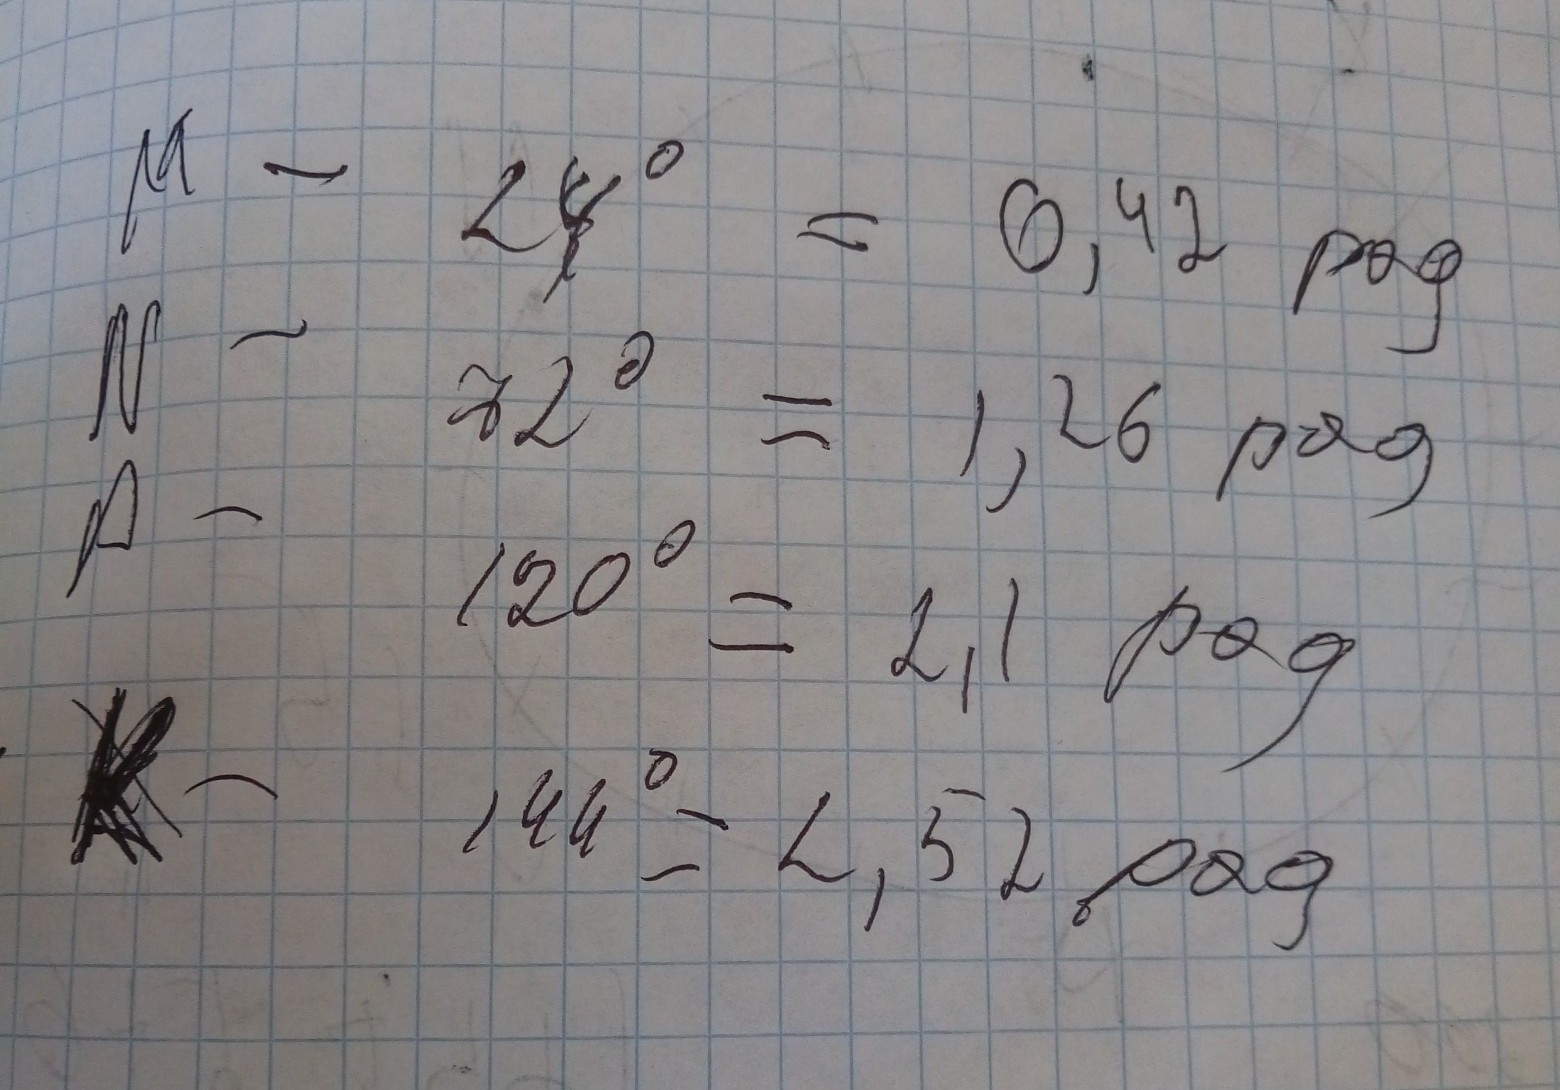 M - 24° = 0,42 рад
N - 72° = 1,26 рад
P - 120° = 2,1 рад
K - 144° = 2,52 рад